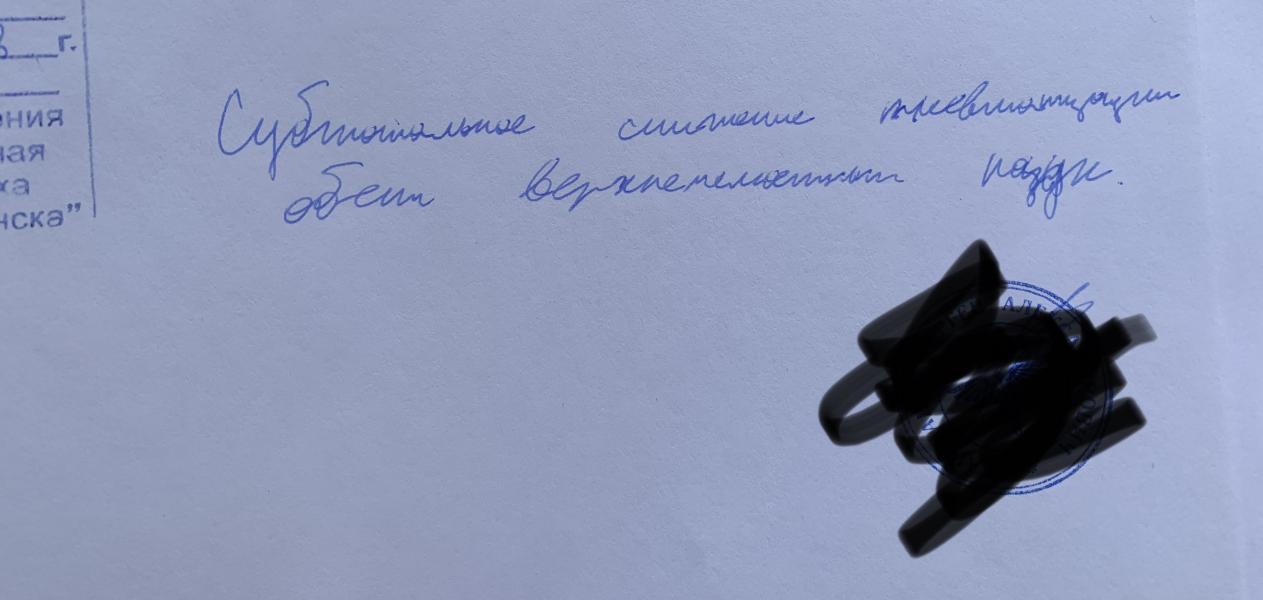 г.
ения
ная
ка
нска"
Субтотальное снижение пневматизации
обеих верхнечелюстных пазух.
АЛЕ